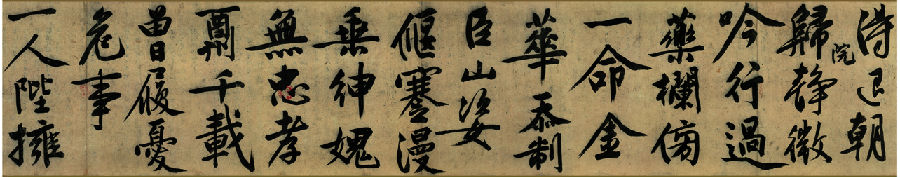 退朝
歸院静微
吟行過
藥欄傍
一命金
華忝制
臣山姿
偃蹇漫
垂紳媿
無忠孝
千載
曾履憂
危事
一人陛擁